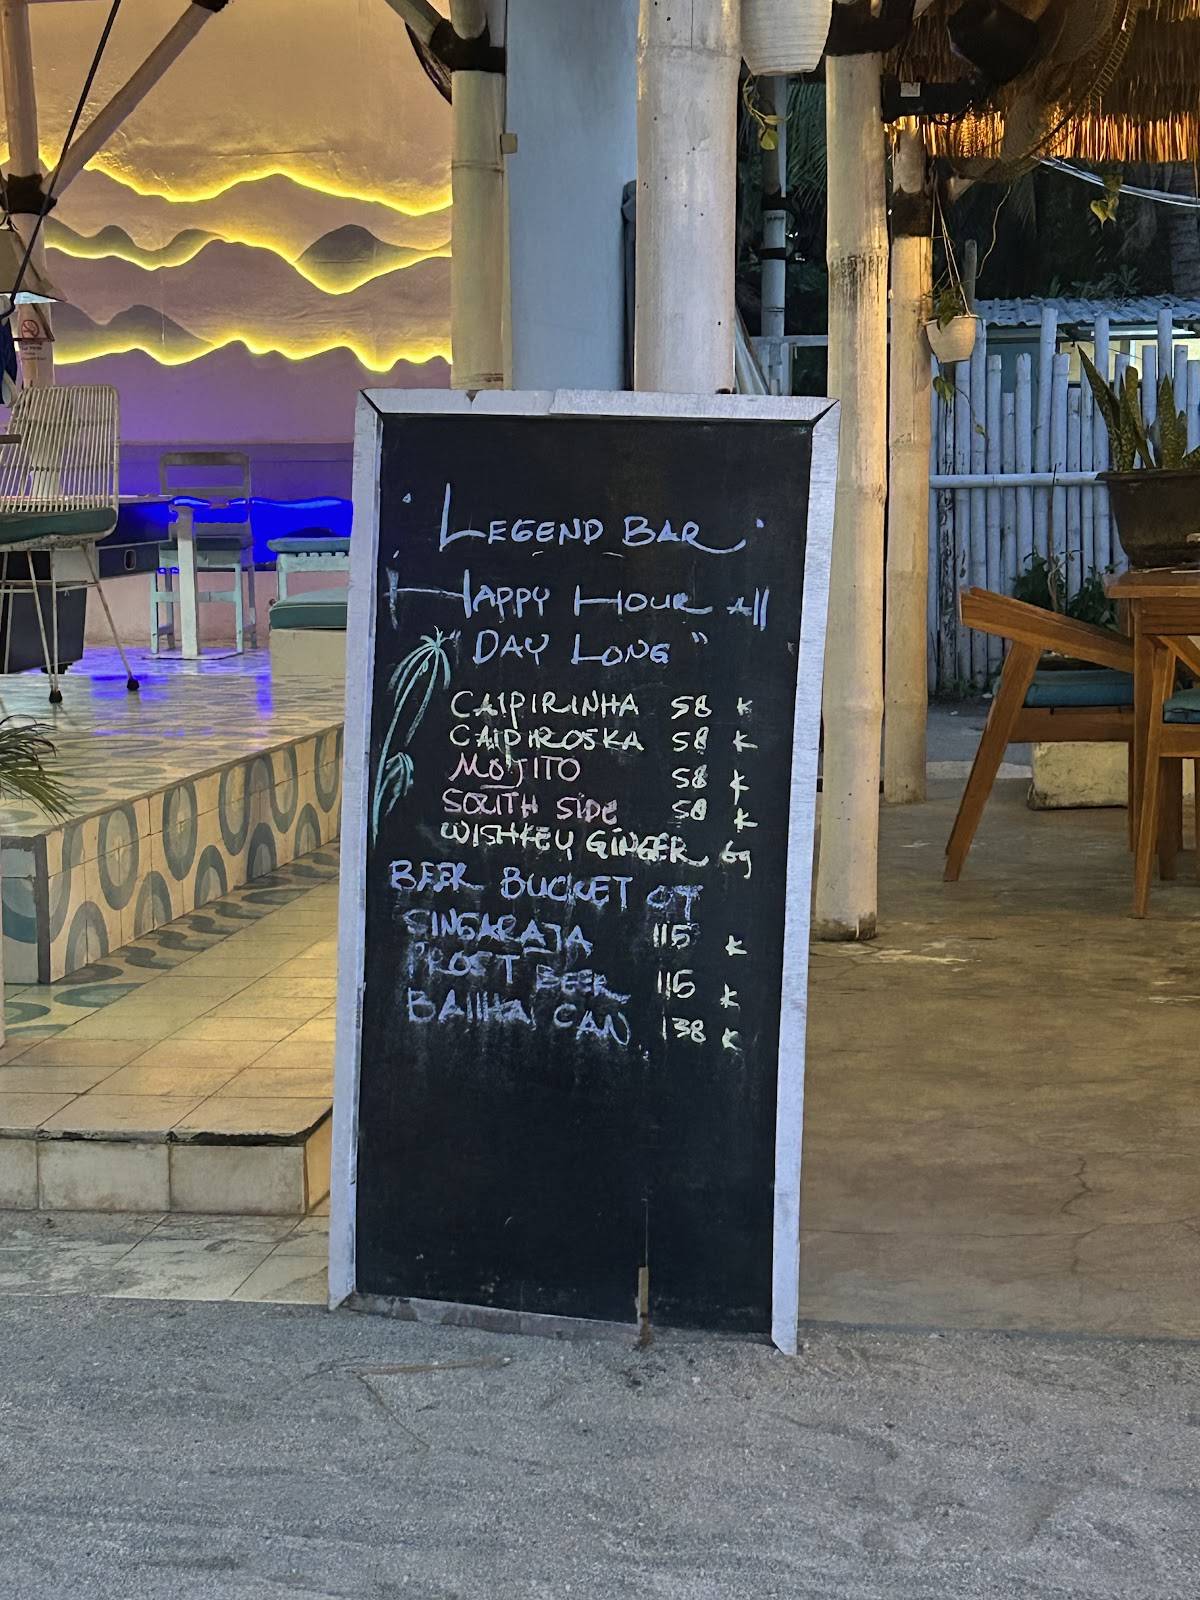 LEGEND BAR
HAPPY HOUR All
"DAY LONG"
CAIPIRINHA 58 K
CAIPIROSKA 58 K
MOJITO 58 K
SOUTH SIDE 58 K
WISHKEY GINGER 69
BEER BUCKET OT
SINGARAJA 115 K
PROST BEER 115 K
BAllHAI CAN 138 K